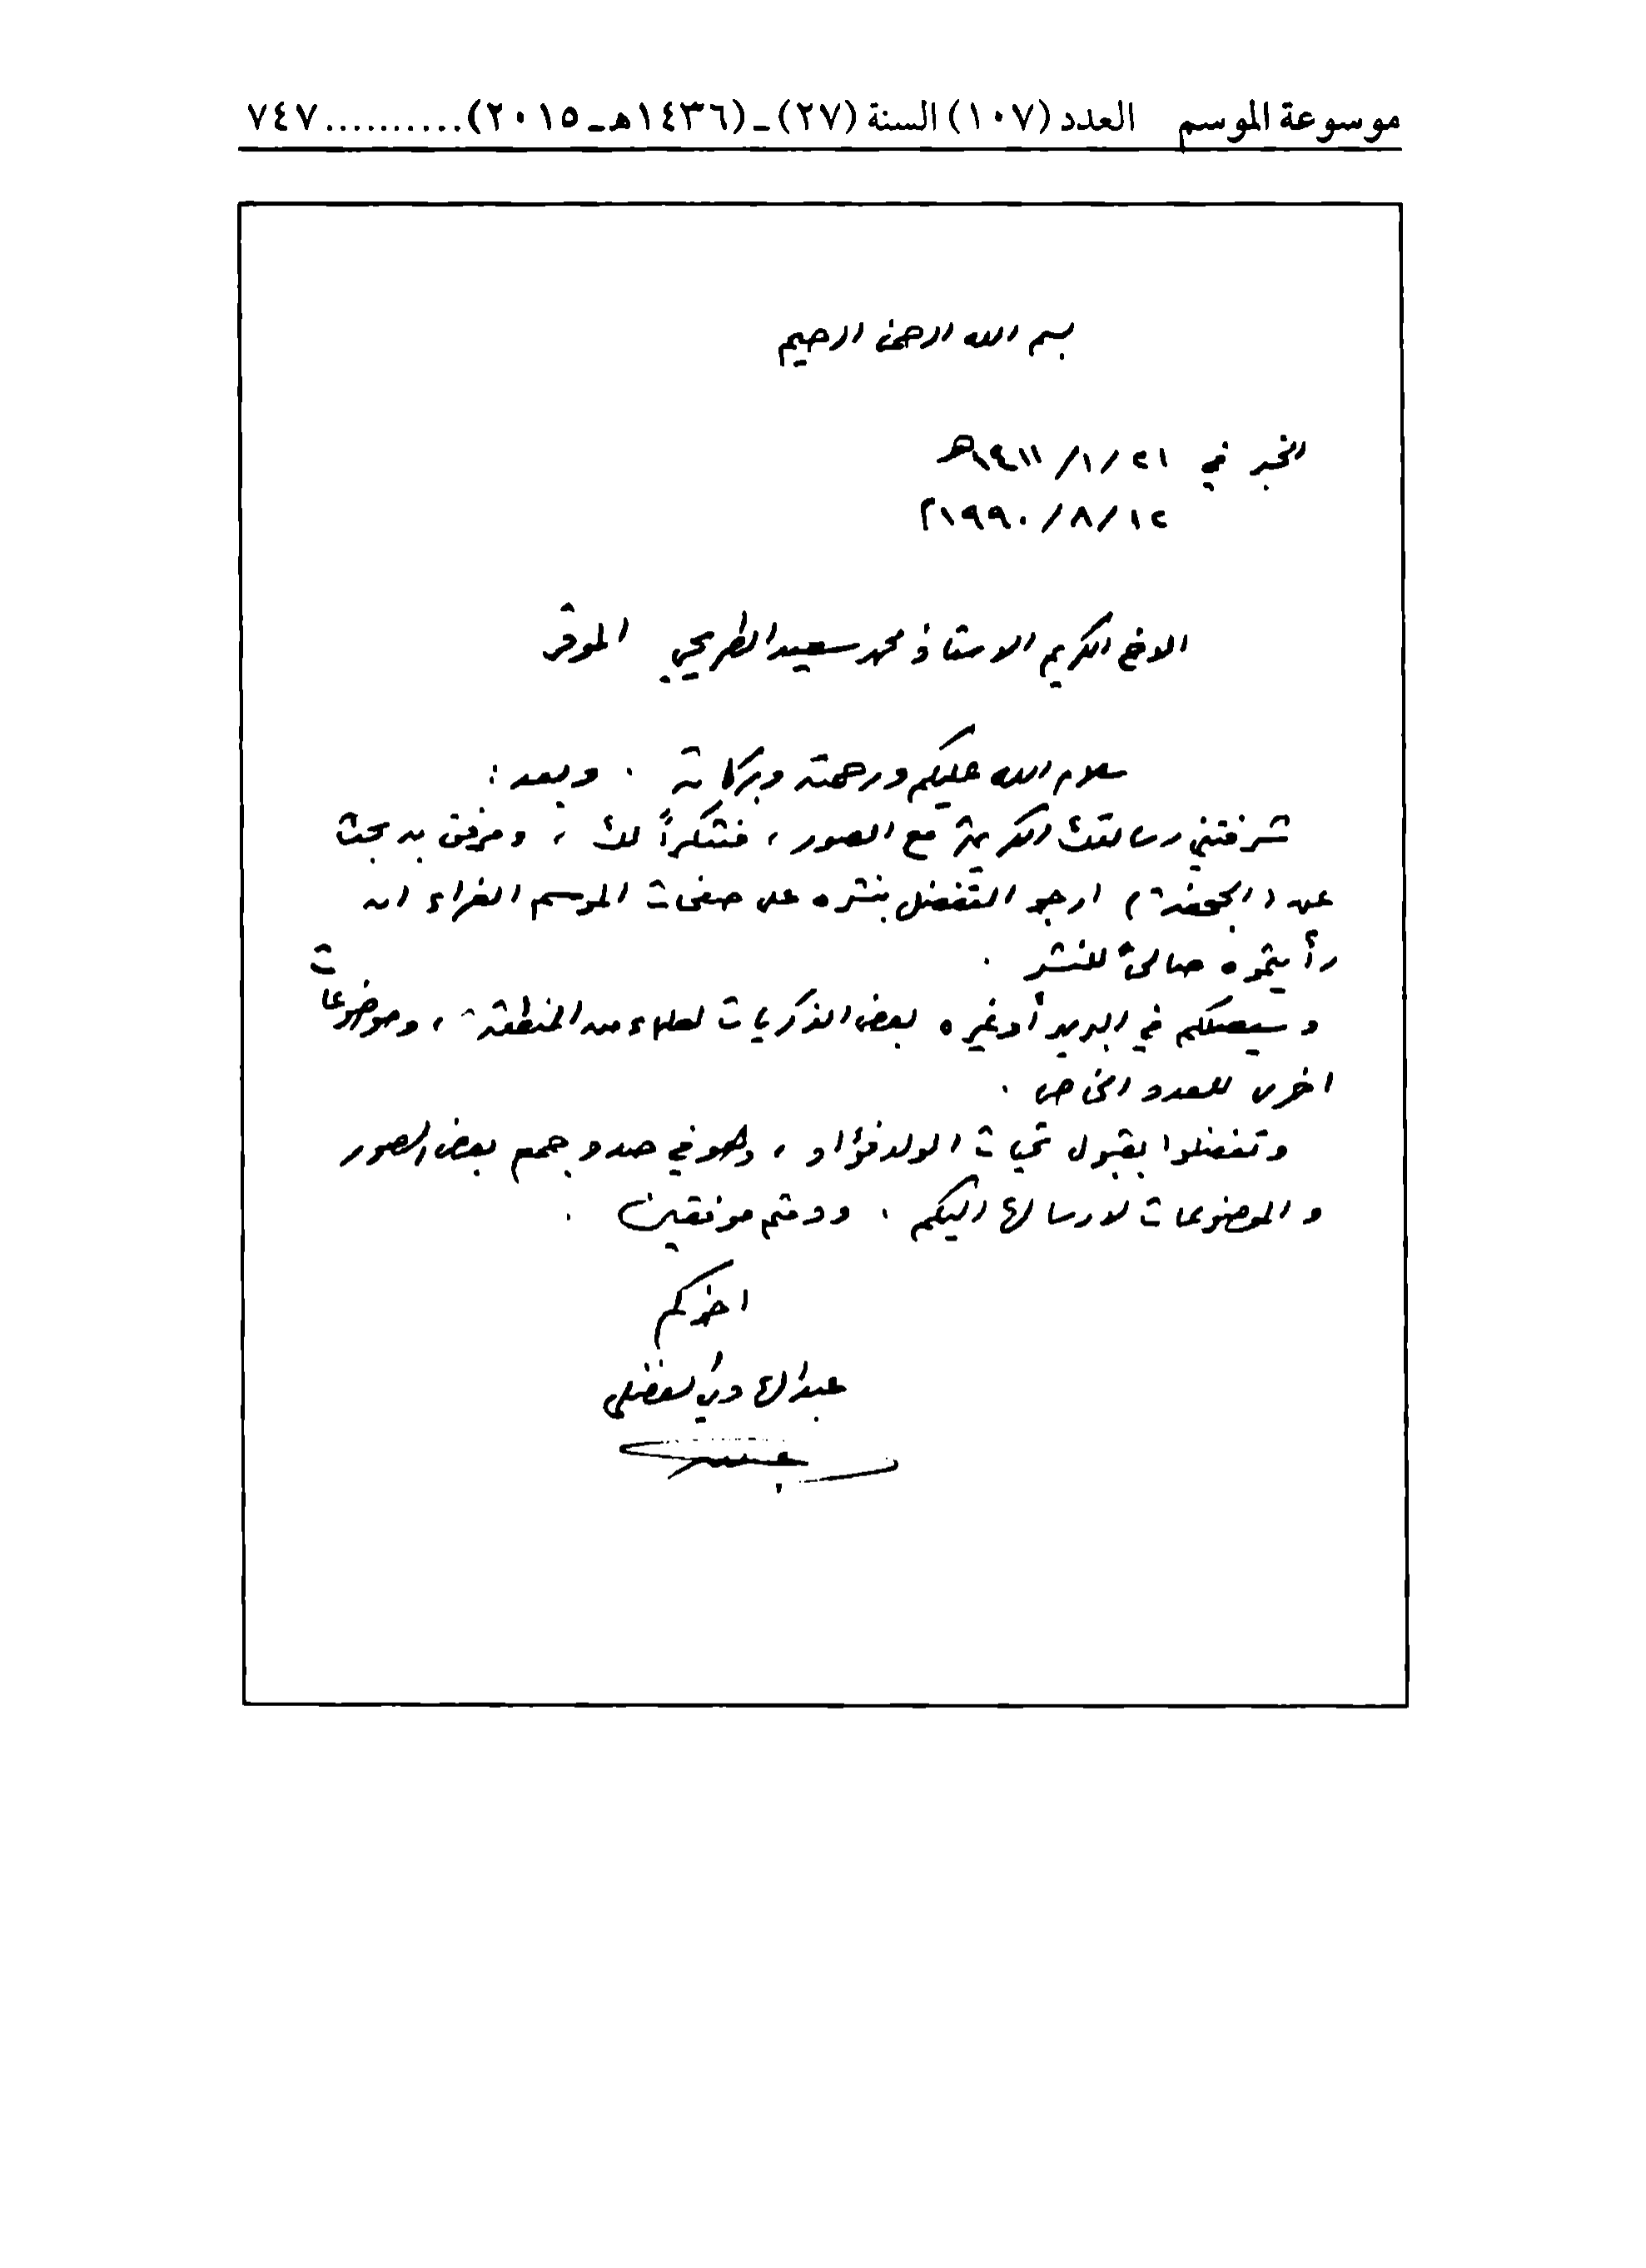 موسوعة الموسم العدد (١٠٧) السنة (٢٧) ـ (١٤٣٦هـ ـ ٢٠١٥) .......... ٧٤٧
بسم الله الرحمن الرحيم
الخبر في ٢١ / ١ / ١٤١١هـ
١٢ / ٨ / ١٩٩٠م
الاخ الكريم الاستاذ محمد سعيد الطريحي الموقر
سلام الله عليكم ورحمته وبركاته . وبعد :
شرفتني رسالتك الكريمة مع الصور ، فشكراً لك ، ومرفق به بحث
عن (الجحفة) ارجو التفضل بنشره على صفحات الموسم الغراء ان
رأيتموه صالحاً للنشر .
وسيصلكم في البريد أو غيره بعض الذكريات لعلماء من المنطقة ، وموضوعات
اخرى للعدد الخاص .
وتفضلوا بقبول تحيات الولد فؤاد ، وهو في صدد جمع بعض الصور
والموضوعات لارسالها اليكم . ودمتم موفقين .
اخوكم
عبدالهادي الفضلي